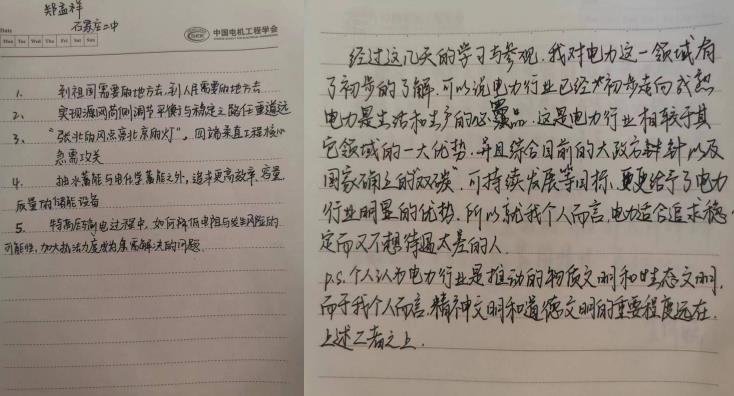 郑孟祥
石家庄二中
Date
Mon Tue Wed Thu Fri Sat Sun
中国电机工程学会
1、到祖国需要的地方去,到人民需要的地方去
2、实现源网荷侧调节平衡与稳定之路任重道远
3、“张北的风点亮北京的灯”,四端柔直工程核心
急需攻关
4、抽水蓄能与电化学蓄能之外,追求更高效率、容量、
质量的储能设备
5、特高压输电过程中,如何降低电阻与发生风险的
可能性,加大抗法力度成为亟需解决的问题
经过这几天的学习与参观,我对电力这一领域有
了初步的了解,可以说电力行业已经初步走向成熟
电力是生活和生产的必需品,这是电力行业相较于其
它领域的一大优势,并且综合目前的大政方针以及
国家确立的“双碳”,可持续发展等目标,更给予了电力
行业明显的优势,所以就我个人而言,电力适合追求稳
定而又不想待遇太差的人.
p.s.个人认为电力行业是推动的物质文明和生态文明,
而于我个人而言,精神文明和道德文明的重要程度远在
上述二者之上.